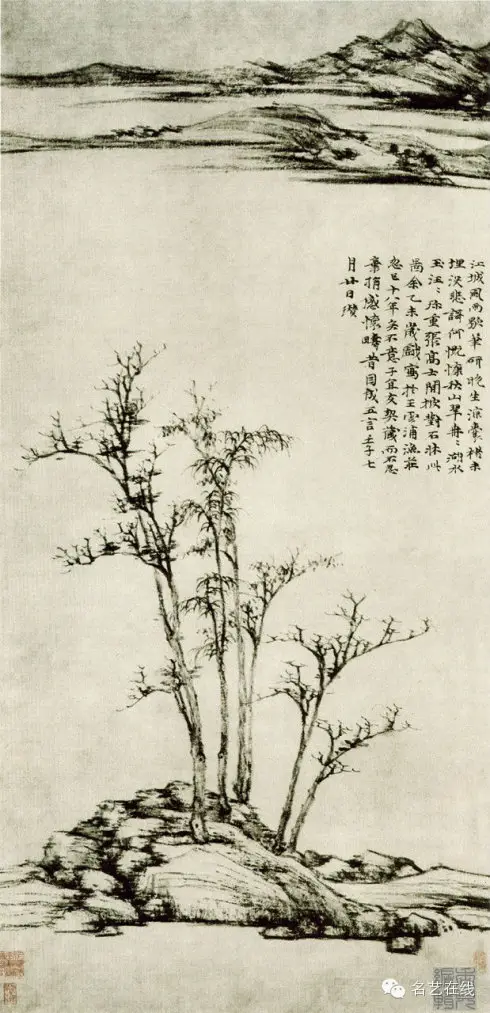 江城風雨歇筆研晚生涼囊楮未
埋没悲謌何慨慷秋山翠冉〻湖水
玉汪〻珍重張高士閒披對石牀此
啚余乙未歲戲寫於王雲浦漁莊
忽已十八年矣不意子宜友契藏而不忍
棄捐感懷疇昔因成五言壬子七
月廿日瓚
名艺在线